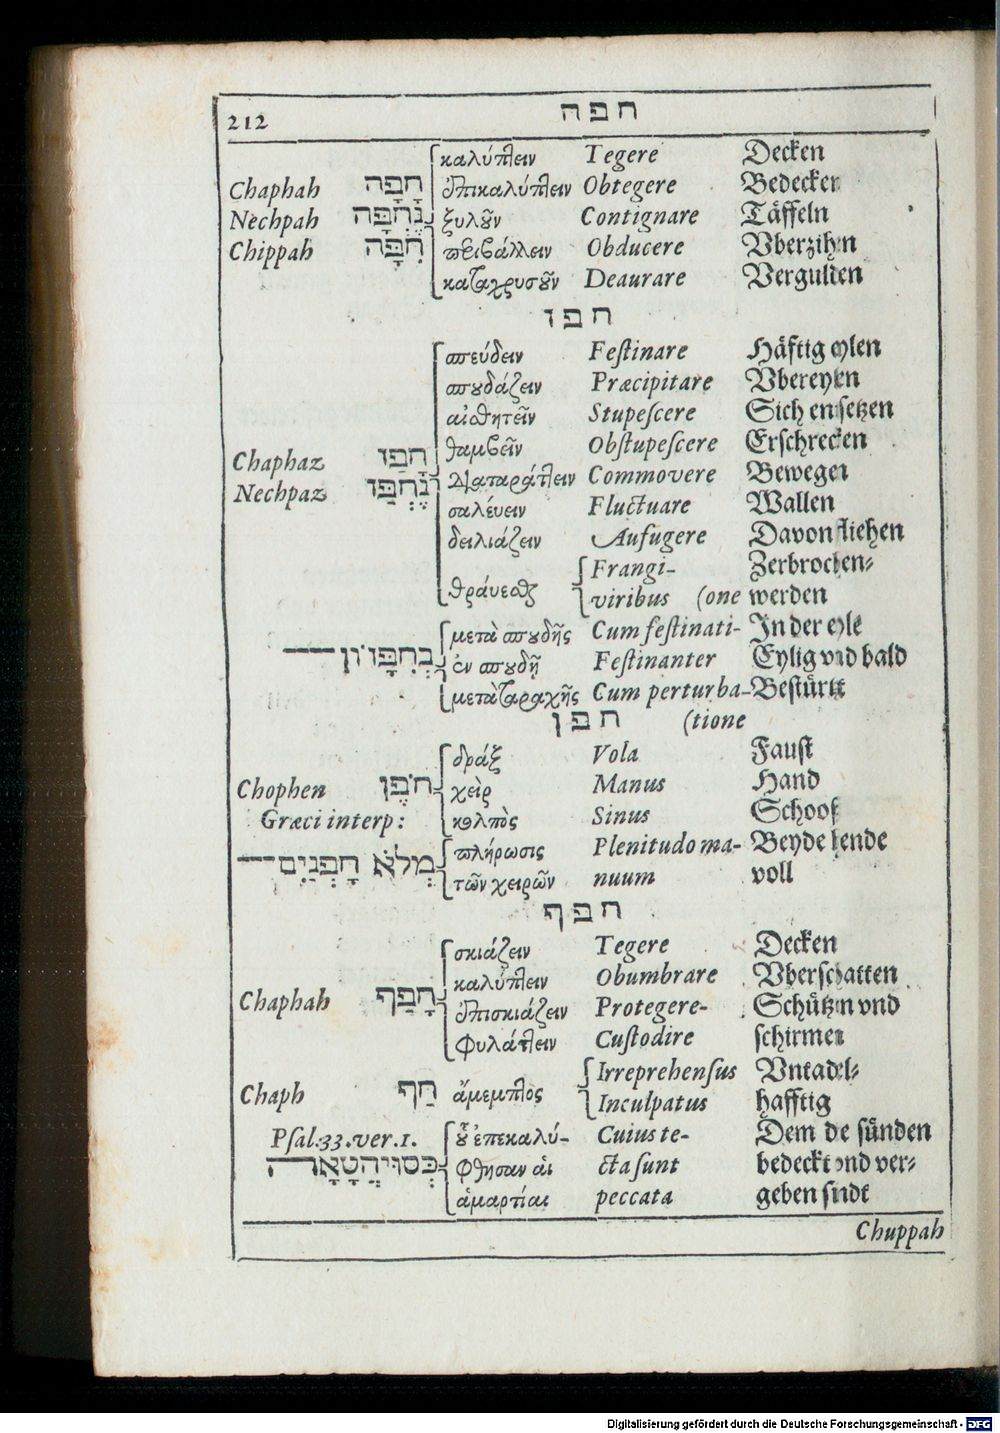 212 חפה
καλύπτειν Tegere Decken
Chaphah חָפָה ἐπικαλύπτειν Obtegere Bedecken
Nechpah נֶחְפָּה ξυλοῦν Contignare Täffeln
Chippah חִפָּה περιβάλλειν Obducere Vberzihen
καταχρυσοῦν Deaurare Vergulden
חפז
σπεύδειν Feſtinare Häfftig eylen
σπουδάζειν Præcipitare Vbereylen
αἰσθητεῖν Stupeſcere Sich entſetzen
θαμβεῖν Obſtupeſcere Erſchrecken
Chaphaz חָפַז διαταράττειν Commovere Bewegen
Nechpaz נֶחְפַּז σαλεύειν Fluctuare Wallen
δειλιάζειν Aufugere Davon fliehen
θράυεσθαι Frangi- Zerbrochen-
viribus (one werden
μετὰ σπουδῆς Cum feſtinati- In der eyle
בְחִפָּזוֹן ἐν σπουδῇ Feſtinanter Eylig vnd bald
μετὰ ταραχῆς Cum perturba- Beſtürtzt
חפן (tione
δράξ Vola Fauſt
Chophen חֹפֶן χεὶρ Manus Hand
Græci interp: κόλπος Sinus Schooß
πλήρωσις Plenitudo ma- Beyde hende
מְלֹא חָפְנַיִם τῶν χειρῶν nuum voll
חפף
σκιάζειν Tegere Decken
καλύπτειν Obumbrare Vberſchatten
Chaphah חָפַף ἐπισκιάζειν Protegere- Schützen vnd
φυλάττειν Cuſtodire ſchirmen
Irreprehenſus Vntadel-
Chaph חַף ἄμεμπτος Inculpatus hafftig
Pſal.33.ver.1. ὧ ἐπεκαλύ- Cuius te- Dem de ſünden
כְּסוּי הֲטָאָה φθησαν ἁι cta ſunt bedeckt vnd ver-
ἁμαρτίαι peccata geben ſindt
Chuppah
Digitalisierung gefördert durch die Deutsche Forschungsgemeinschaft - DFG